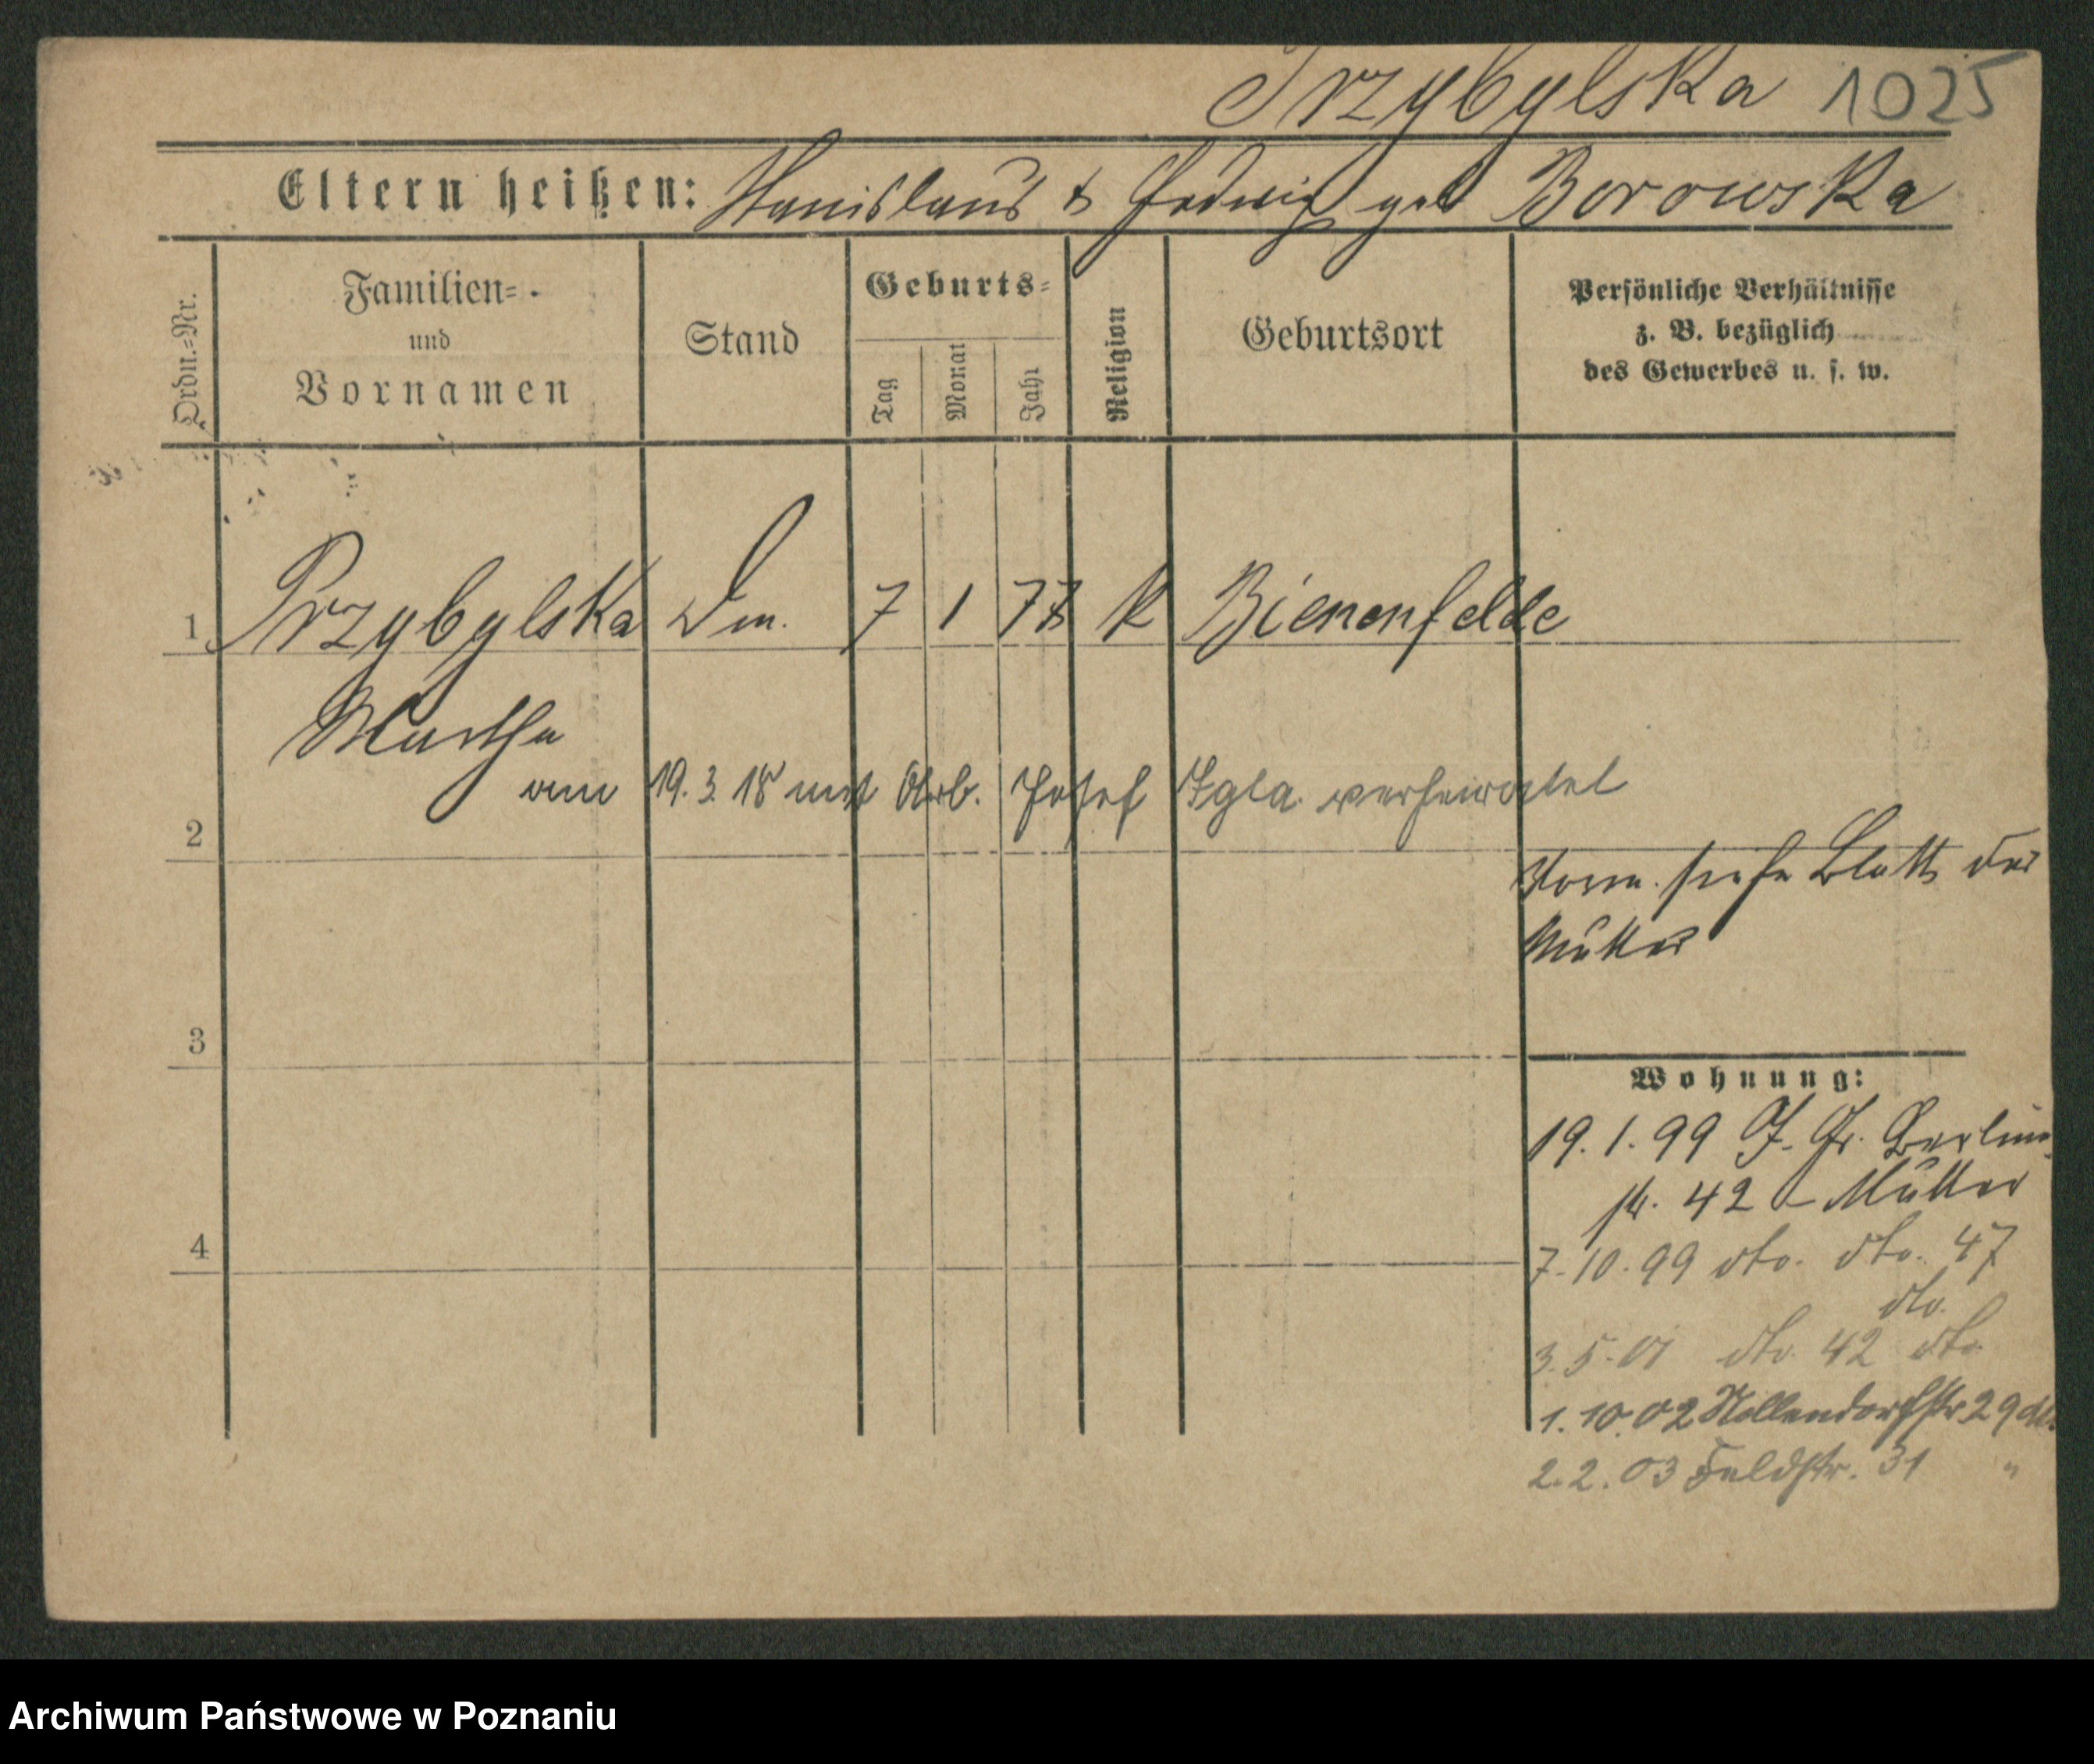 Przybylska 1025
Eltern heißen: Stanislaus & Hedwig geb Borowska
Ordn.=Nr.
Familien=
und
Vornamen
Stand
Geburts=
Tag
Monat
Jahr
Religion
Geburtsort
Persönliche Verhältnisse
z. B. bezüglich
des Gewerbes u. s. w.
1 Przybylska 7 1 78 K Bienenfelde
Martha
am 19. 3. 18 mit Arb. Josef Igla verheiratet
2
Vorm. siehe Blatt der
Mutter
3
Wohnung:
19. 1. 99 Gr. Berliner
str. 42 Mutter
7. 10. 99 dto. dto. 47
dto.
4
3. 5. 01 dto. 42 dto.
1. 10. 02 Nollendorfstr 29 dto.
2. 2. 03 Feldstr. 31 "
Archiwum Państwowe w Poznaniu